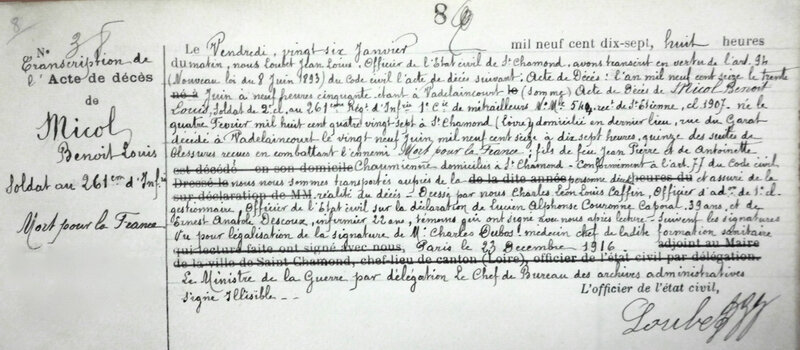 8
8
N° 3
Transcription de
l'Acte de décès
de
Micol
Benoit Louis
Soldat au 261em d'Infie
Mort pour la France
Le Vendredi, vingt six Janvier mil neuf cent dix-sept, huit heures
du matin, nous Loubet Jean Louis, Officier de l'État civil de St Chamond, avons transcrit en vertu de l'art. 94
(Nouveau loi du 8 Juin 1893) du Code civil l'acte de décès suivant: Acte de Décès: l'an mil neuf cent seize le trente
né à Juin à neuf heures cinquante étant à Vadelaincourt le (somme) Acte de Décès de Micol Benoit
Louis, Soldat de 2e cl. au 261em Régt d'Infie 1e Cie de mitrailleurs N° Mle 549, rect de St Etienne, cl. 1907. né le
quatre Février mil huit cent quatre vingt sept à St Chamond (Loire) domicilié en dernier lieu, rue du Garat
décédé à Vadelaincourt le vingt neuf Juin mil neuf cent seize à dix sept heures, quinze des suites de
blessures reçues en combattant l'ennemi. Mort pour la France; fils de feu Jean Pierre et de Antoinette
est décédé en son domicile Chaumienne domiciliés à St Chamond - Conformément à l'art. 77 du Code civil
Dressé le nous nous sommes transportés auprès de la de la dite année personne du heures du et assuré de la
sur déclaration de MM. réalité du décès - Dressé par nous Charles Léon Louis Caffin, Officier d'adon de 1e cl.
gestionnaire Officier de l'Etat civil sur la déclaration de Lucien Alphonse Couronne Caporal 39 ans, et de
Ernest Anatole Descoux, infirmier 22 ans, témoins qui ont signé avec nous après lecture - Suivent les signatures
Vu pour légalisation de la signature de Mr Charles Dubos! médecin chef de ladite formation sanitaire
qui lecture faite ont signé avec nous, Paris le 23 Décembre 1916 adjoint au Maire
de la ville de Saint Chamond, chef-lieu de canton (Loire), officier de l'état civil par délégation.
Le Ministre de la Guerre par délégation Le Chef de Bureau des archives administratives
signé Illisible
L'officier de l'état civil,
Loubet